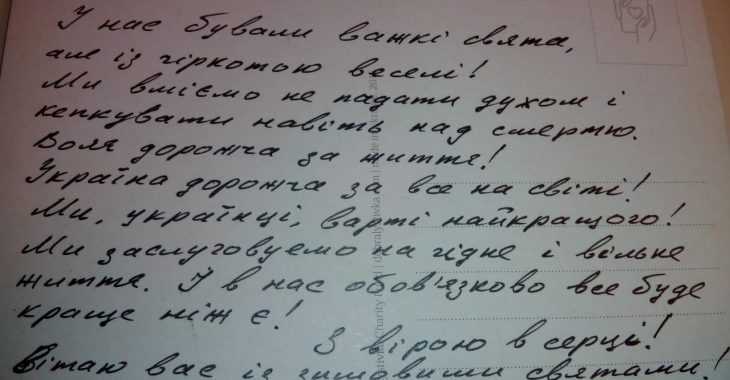 У нас бували важкі свята,
але із гіркотою веселі!
Ми вміємо не падати духом і
кепкувати навіть над смертю.
Воля дорожча за життя!
Україна дорожча за все на світі!
Ми, українці, варті найкращого!
Ми заслуговуємо на гідне і вільне
життя. І в нас обов'язково все буде
краще ніж є!
З вірою в серці!
Вітаю вас із зимовими святами!